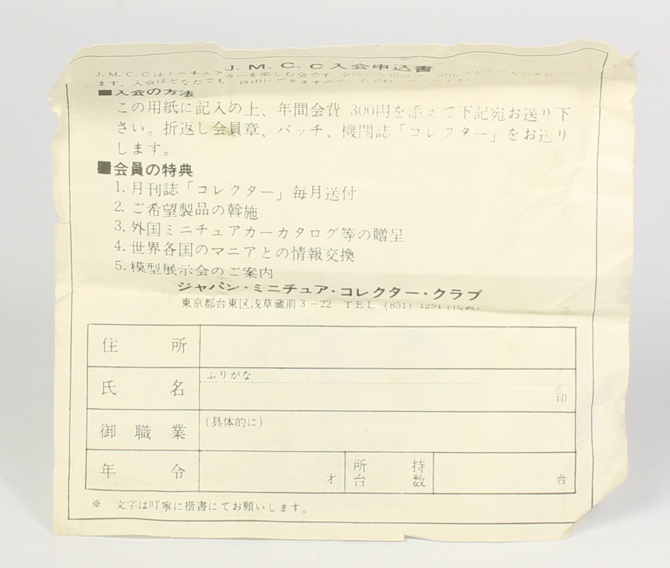 J.M.C.C入会申込書
J.M.C.Cはミニチュアカーを楽しむ会です。
ます。入会はどなたでも、自由にできますので、
■入会の方法
この用紙に記入の上、年間会費 300円を添えて下記宛お送り下
さい。折返し会員章、バッチ、機関誌「コレクター」をお送り
します。
■会員の特典
1.月刊誌「コレクター」毎月送付
2.ご希望製品の斡施
3.外国ミニチュアカーカタログ等の贈呈
4.世界各国のマニアとの情報交換
5.模型展示会のご案内
ジャパン・ミニチュア・コレクター・クラブ
東京都台東区浅草蔵前3－22 TEL (851)
住所
ふりがな
氏名 印
御職業 (具体的に)
年令 才 所持台数 台
※ 文字は叮寧に楷書にてお願いします。